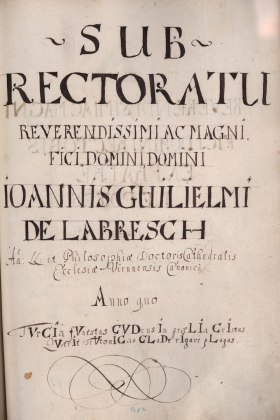 ~ SUB ~
RECTORATU
REVERENDISSIMI AC MAGNI,
FICI, DOMINI, DOMINI
IOANNIS GUILIELMI
DE LABRESCH
AA. LL. et Philosophiæ Doctoris Cathedralis
Ecclesiæ Viennensis Canonici
Anno quo
TVrCIa fVnestas CVDens In prœLIa
rIgare pLagas.